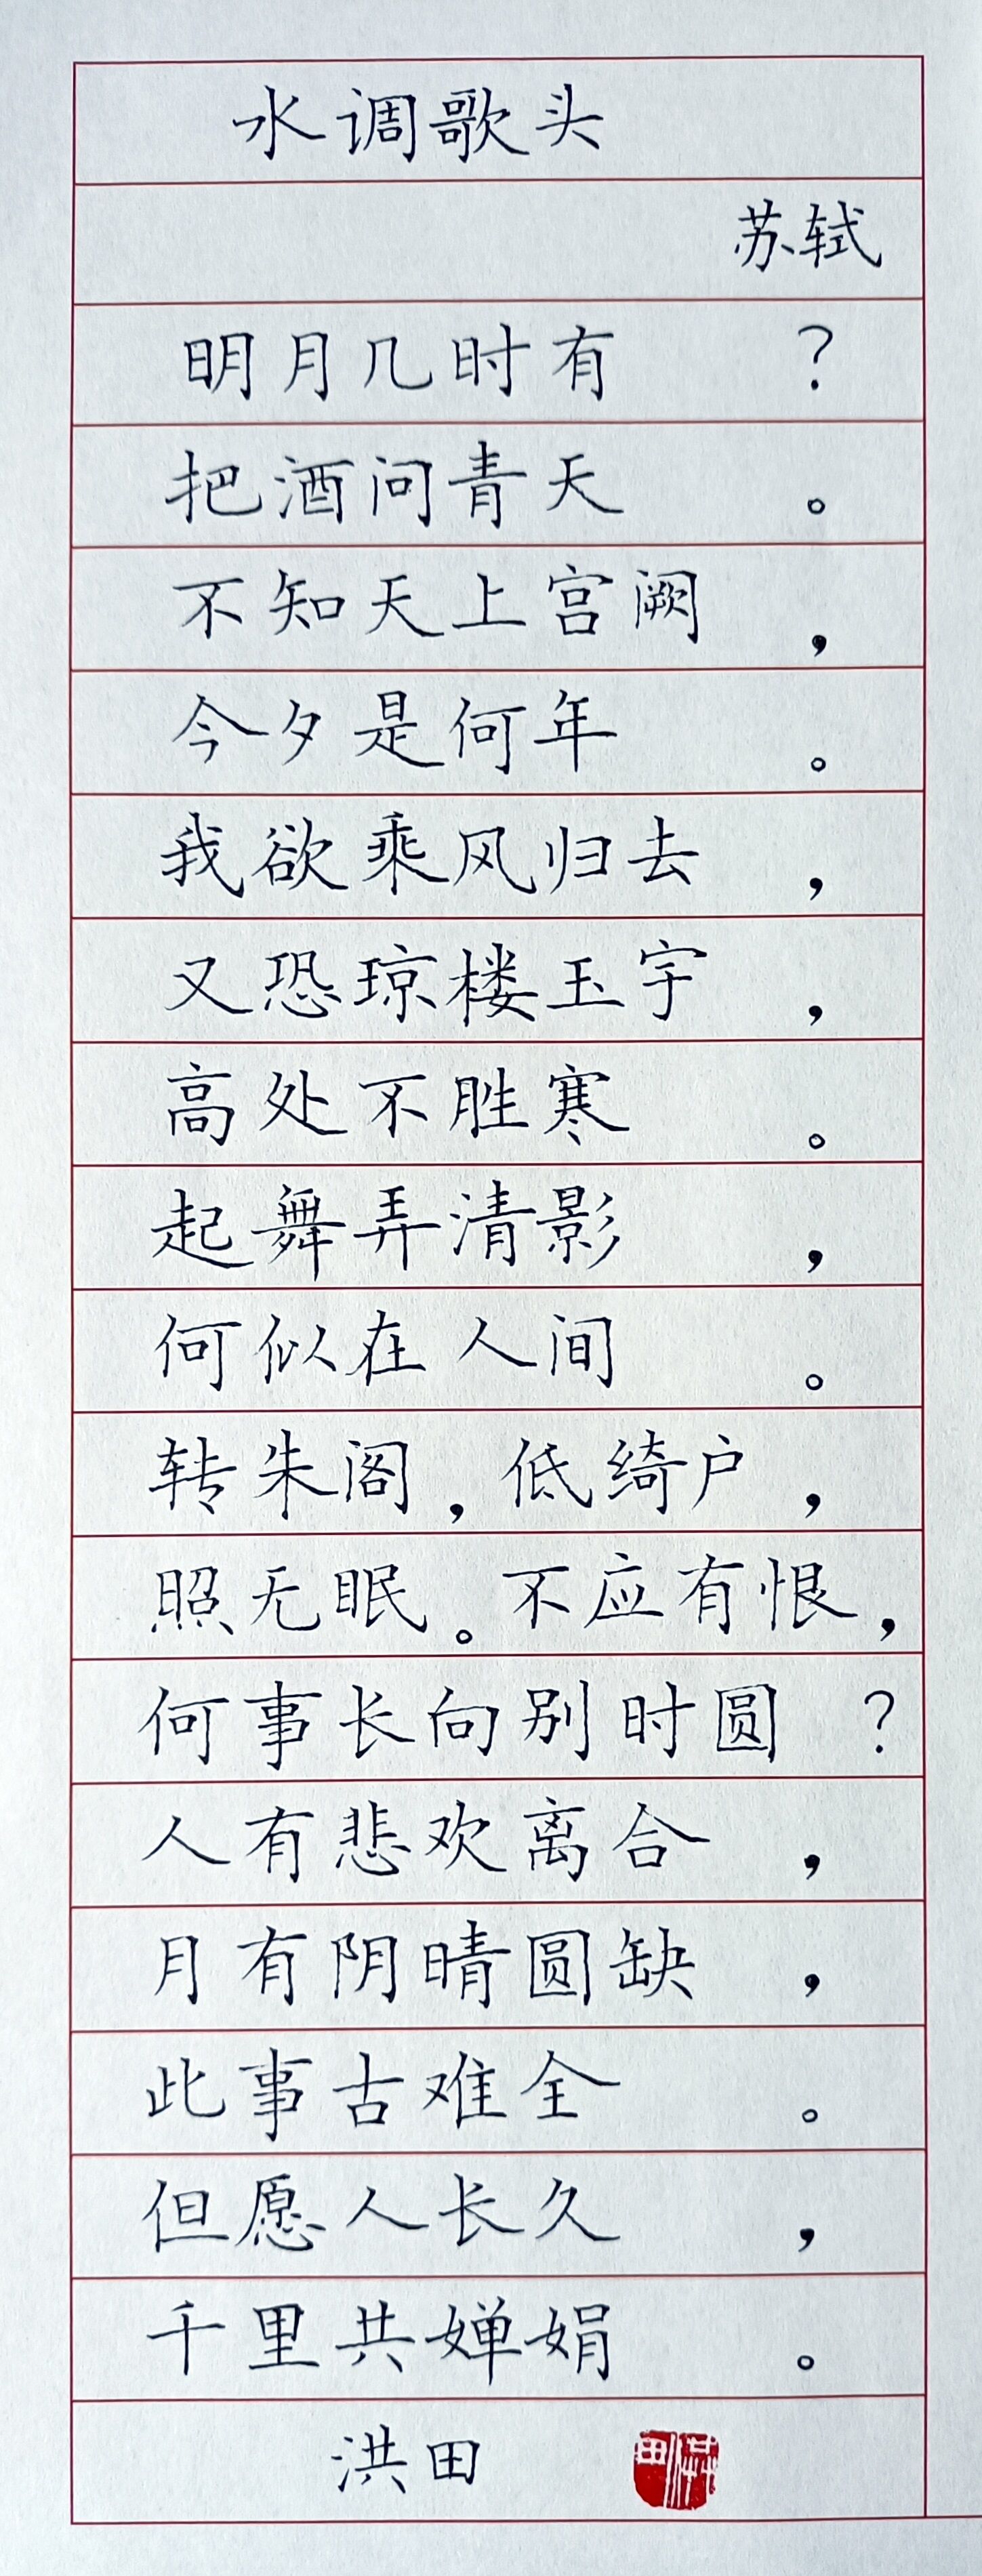 水调歌头
苏轼
明月几时有?
把酒问青天。
不知天上宫阙,
今夕是何年。
我欲乘风归去,
又恐琼楼玉宇,
高处不胜寒。
起舞弄清影,
何似在人间。
转朱阁,低绮户,
照无眠。不应有恨,
何事长向别时圆?
人有悲欢离合,
月有阴晴圆缺,
此事古难全。
但愿人长久,
千里共婵娟。
洪田